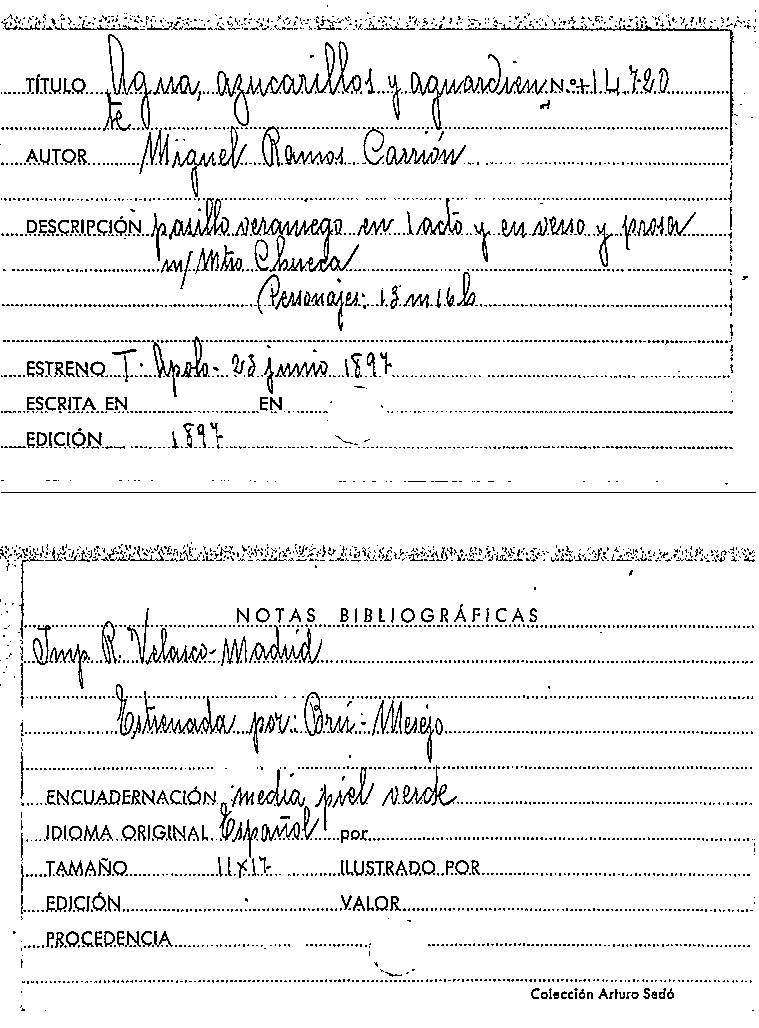 TÍTULO Agua, azucarillos y aguardien N.º + 14.720
te
AUTOR Miguel Ramos Carrión
DESCRIPCIÓN pasillo veraniego en 1 acto y en verso y prosa
m/ Mtro Chueca
Personajes: 13 m 16 h
ESTRENO T. Apolo - 23 junio 1897
ESCRITA EN EN
EDICIÓN 1897
NOTAS BIBLIOGRÁFICAS
Imp. R. Velasco - Madrid
Estrenada por: Brú - Mesejo
ENCUADERNACIÓN media piel verde
IDIOMA ORIGINAL Español por
TAMAÑO 11x17 ILUSTRADO POR
EDICIÓN VALOR
PROCEDENCIA
Colección Arturo Sedó